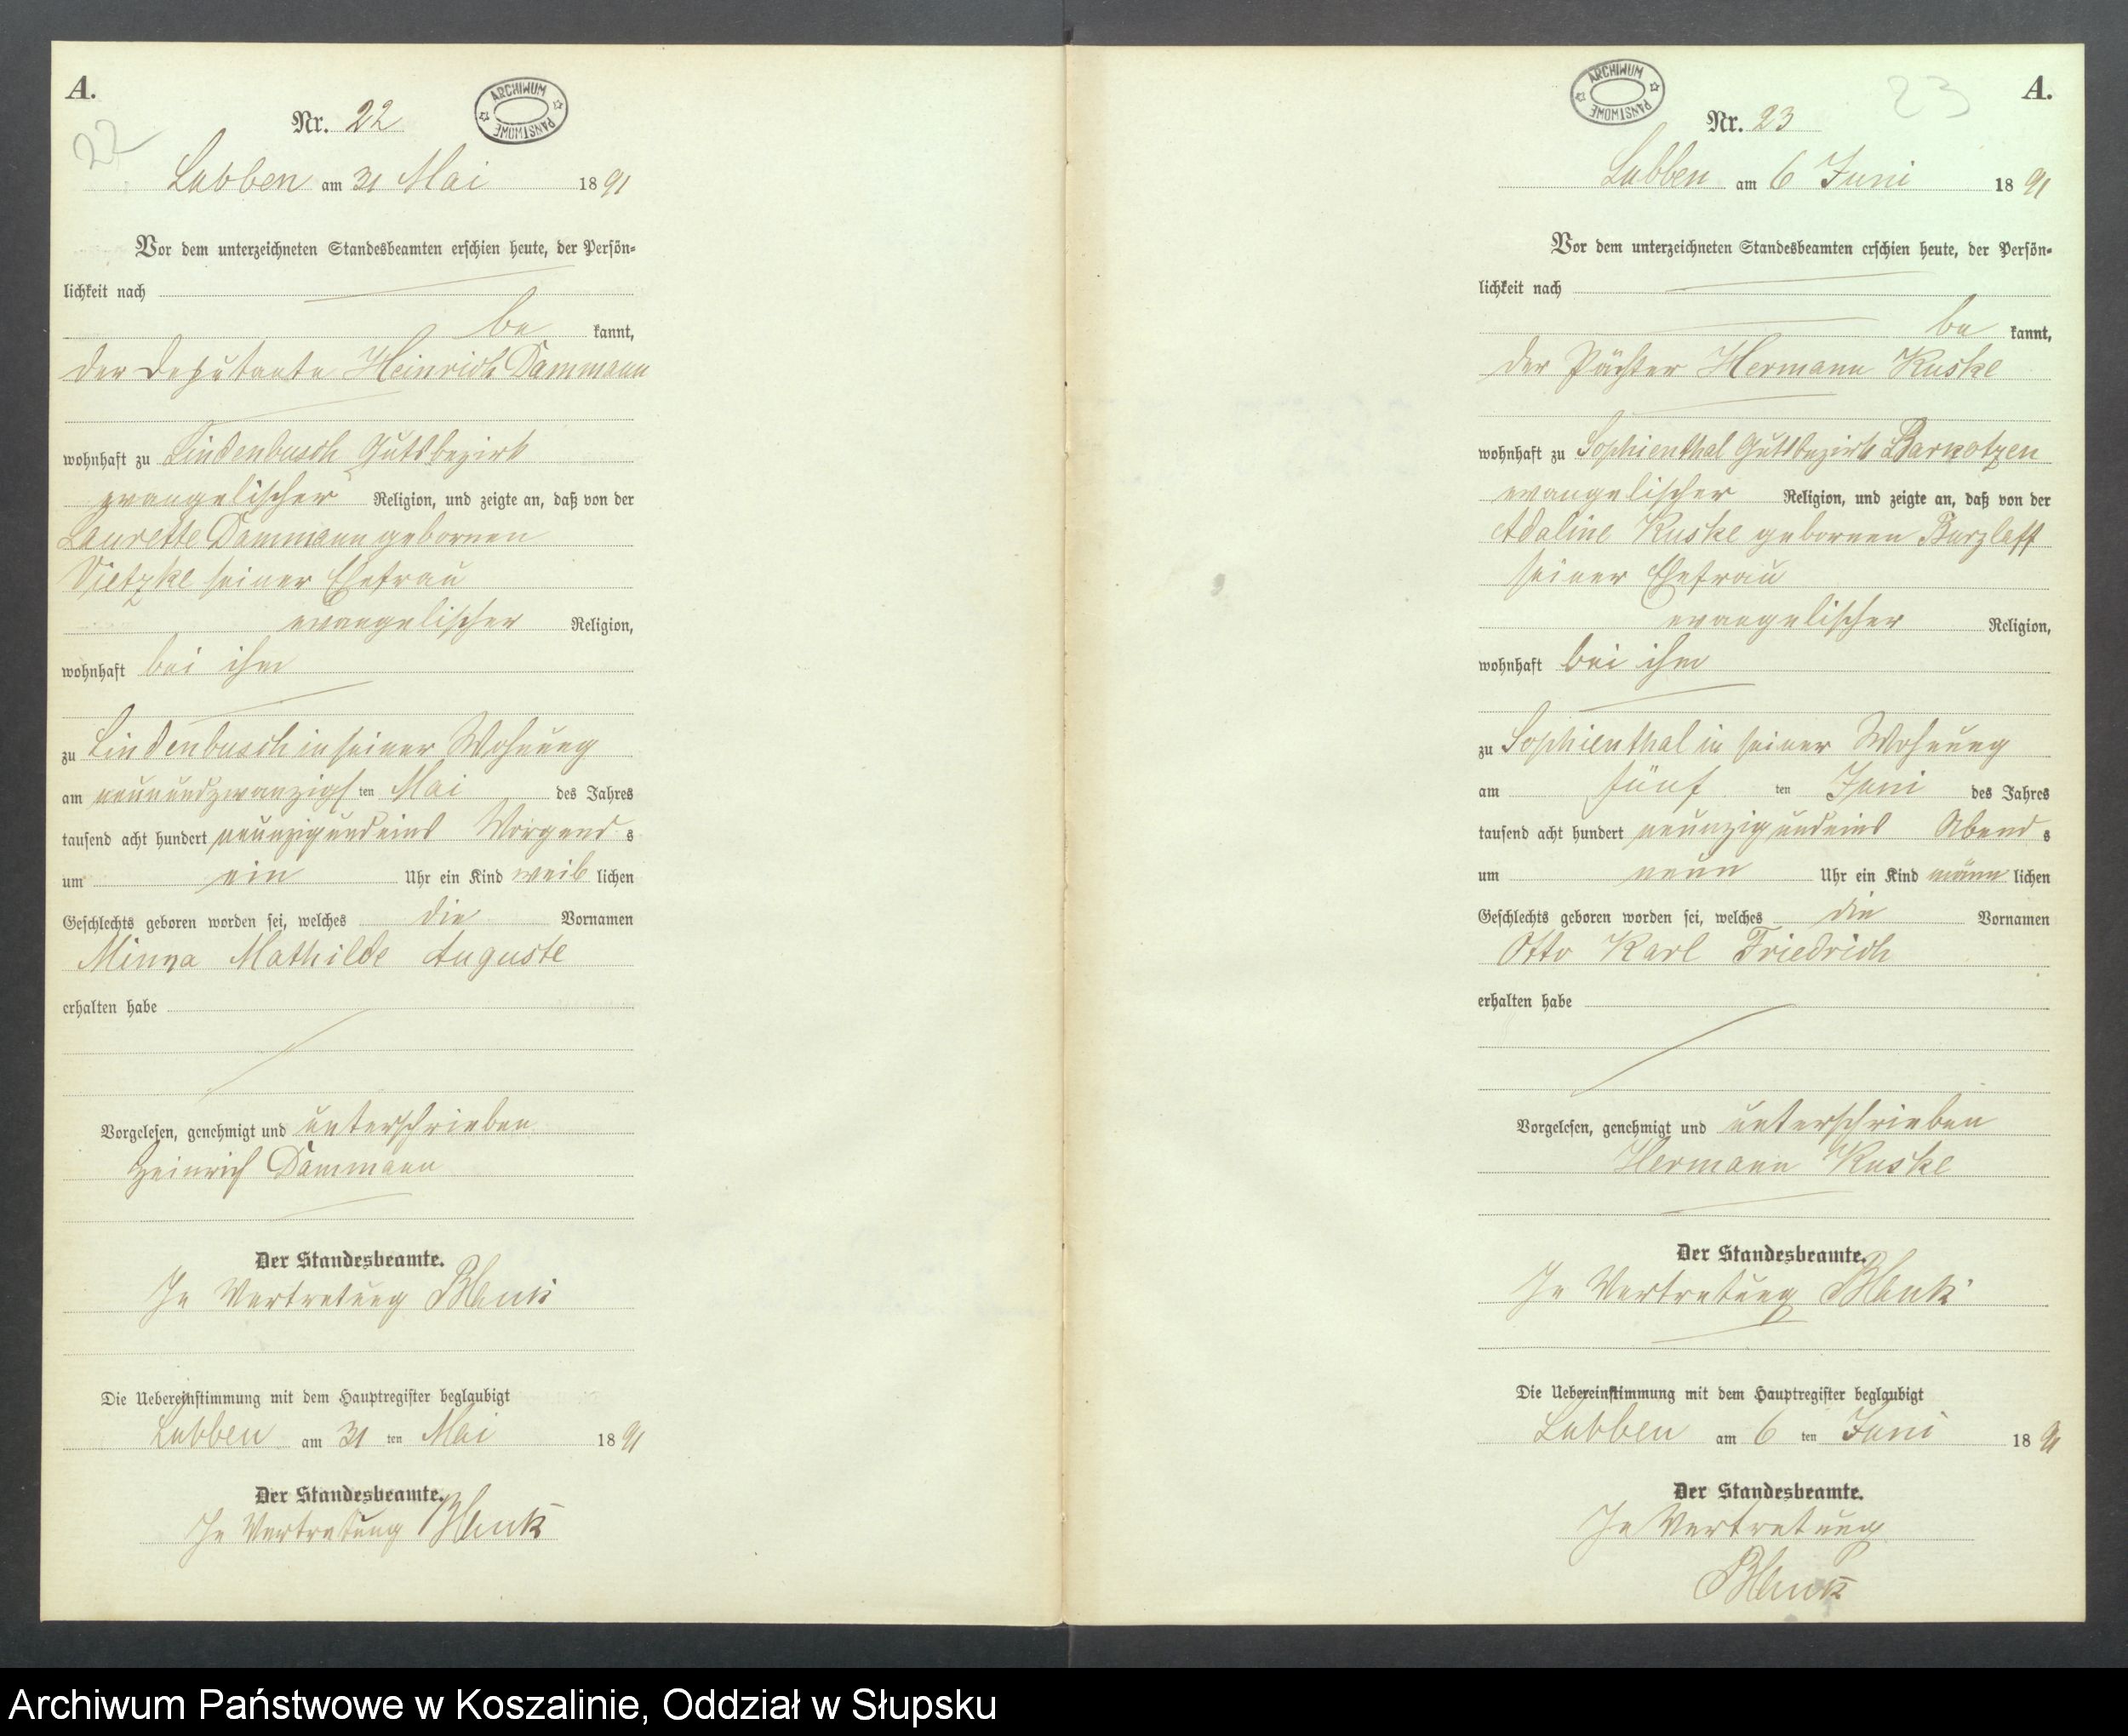 A.
22
Nr. 22
ARCHIWUM PAŃSTWOWE
Lubben am 31 Mai 1891
Vor dem unterzeichneten Standesbeamten erschien heute, der Persön=
lichkeit nach
be kannt,
der Deputante Heinrich Dammann
wohnhaft zu Lindenbusch Gutsbezirk
evangelischer Religion, und zeigte an, daß von der
Laurette Dammann gebornen
Vietzke seiner Ehefrau
evangelischer Religion,
wohnhaft bei ihm
zu Lindenbusch in seiner Wohnung
am neunundzwanzigsten Mai des Jahres
tausend acht hundert neunzigundeins Morgends
um ein Uhr ein Kind weiblichen
Geschlechts geboren worden sei, welches die Vornamen
Minna Mathilde Auguste
erhalten habe
Vorgelesen, genehmigt und unterschrieben
Heinrich Dammann
Der Standesbeamte.
In Vertretung Blank
Die Uebereinstimmung mit dem Hauptregister beglaubigt
Lubben am 31 ten Mai 1891
Der Standesbeamte.
In Vertretung Blank
A.
23
Nr. 23
ARCHIWUM PAŃSTWOWE
Lubben am 6 Juni 1891
Vor dem unterzeichneten Standesbeamten erschien heute, der Persön=
lichkeit nach
be kannt,
der Pächter Hermann Kuske
wohnhaft zu Sophienthal Gutsbezirk Barnotzen
evangelischer Religion, und zeigte an, daß von der
Adaline Kuske gebornen Burzlaff
seiner Ehefrau
evangelischer Religion,
wohnhaft bei ihm
zu Sophienthal in seiner Wohnung
am fünf ten Juni des Jahres
tausend acht hundert neunzigundeins Abends
um neun Uhr ein Kind männlichen
Geschlechts geboren worden sei, welches die Vornamen
Otto Karl Friedrich
erhalten habe
Vorgelesen, genehmigt und unterschrieben
Hermann Kuske
Der Standesbeamte.
In Vertretung Blank
Die Uebereinstimmung mit dem Hauptregister beglaubigt
Lubben am 6 ten Juni 1891
Der Standesbeamte.
In Vertretung
Blank
Archiwum Państwowe w Koszalinie, Oddział w Słupsku